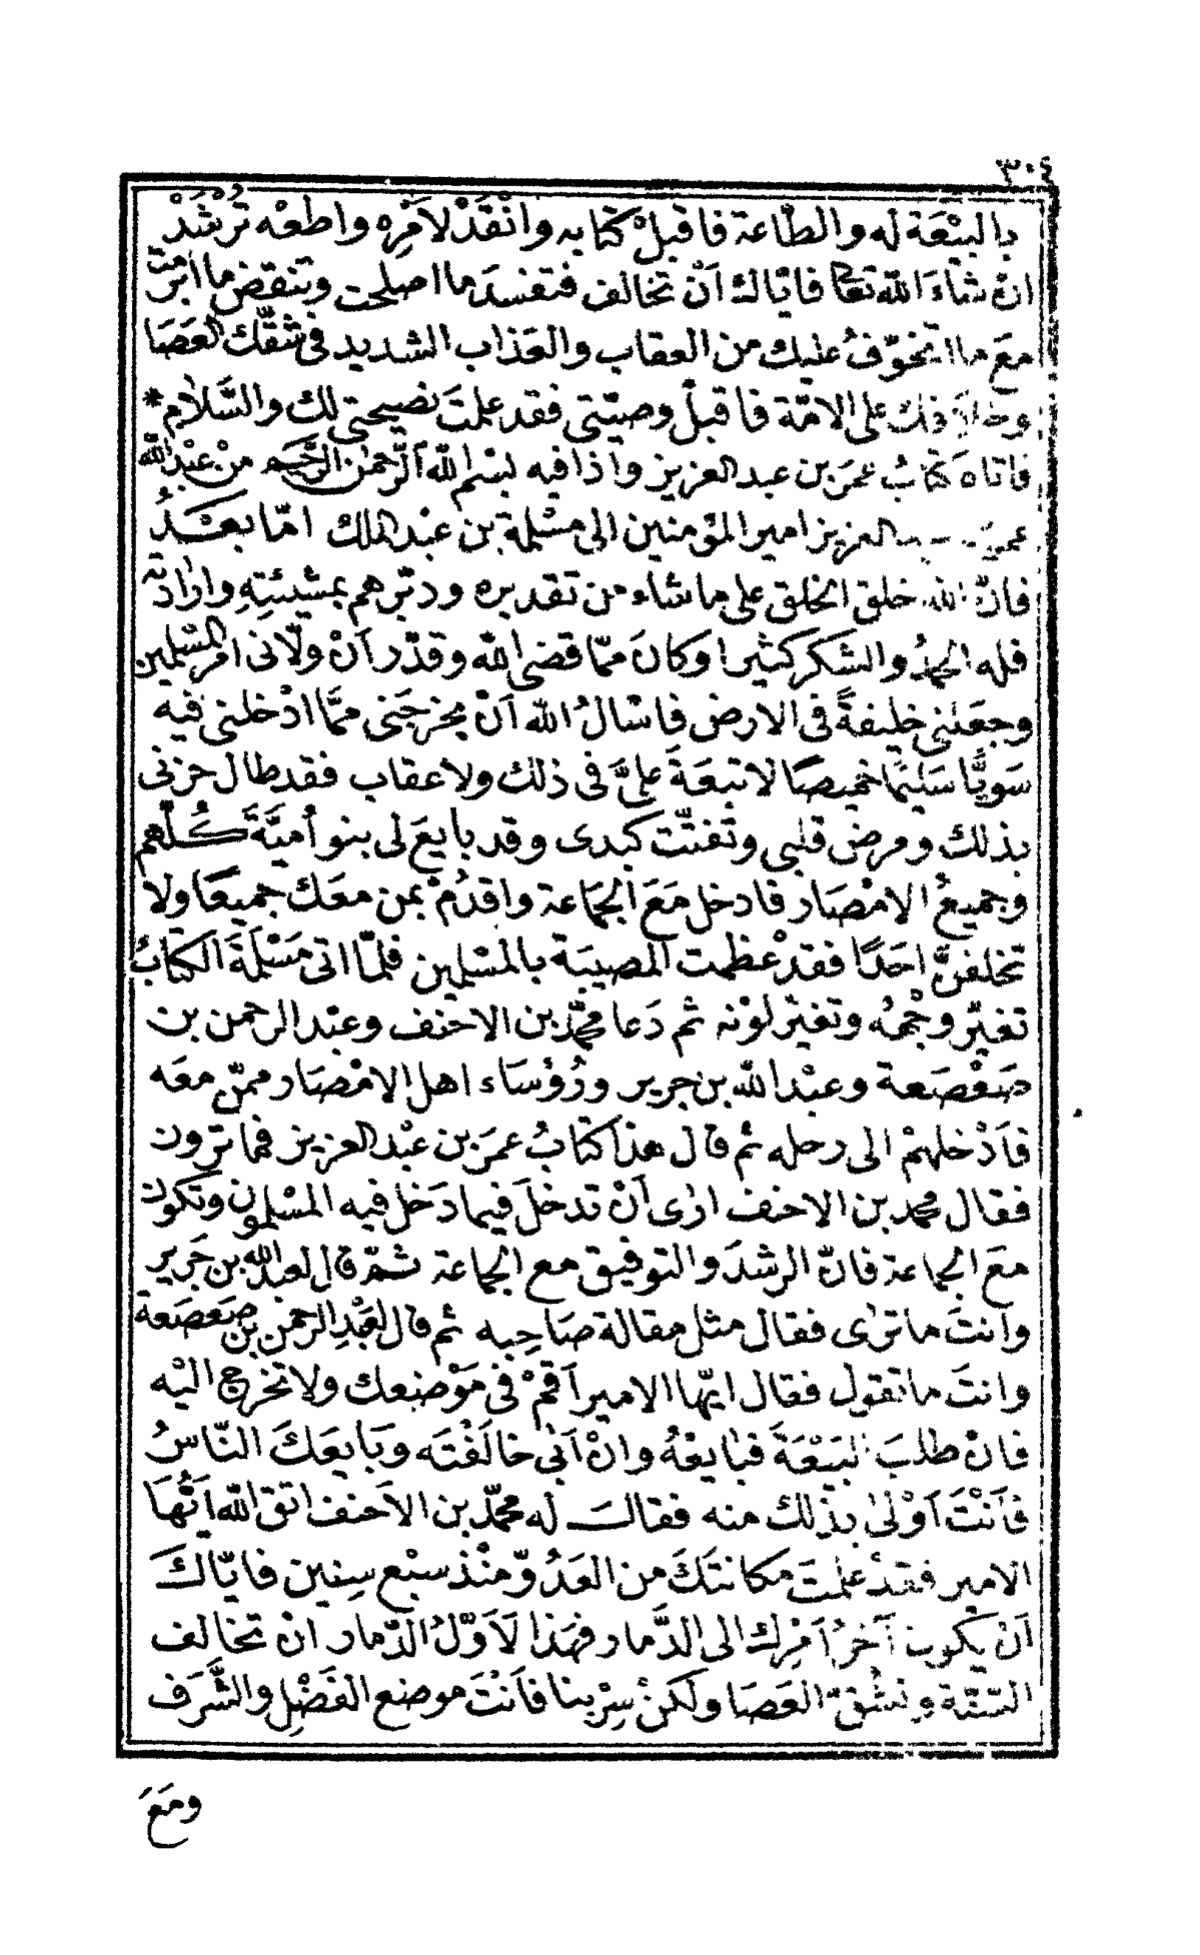 ٣٠٤
بالبَيْعَة له والطّاعة فاقبلْ كتابه وانْقَدْ لاَمْرِه واطعْه تَرْشَدْ
انْ شاءَ اللّه تعالى فايّاك اَنْ تخالف فتفسدَ ما اصلحت وتنقض ما ابرمت
مَعَ ما اتخوّفُ عليك من العقاب والعَذاب الشديد فى شقّك العَصَا
وخلافك على الامّة فاقبلْ وصيّتى فقد علمتَ نصيحتى لك والسَّلام *
فاتاه كتابُ عمَر بن عبد العزيز واذا فيه بسْم اللّه الرّحمٰن الرّحيم منْ عبْد اللّه
عمر بن عبد العزيز امير المؤمنين الى مسْلمة بن عبْد الملك امّا بعَـدُ
فانّ اللّه خلق الخلق على ما شاء من تقديره ودبّرهم بمشيئتِهِ وارادته
فله الحمدُ والشكر كثيرا وكانَ ممّا قضى اللّه وقدّر اَنْ ولّانى امْر المسْلمين
وجعَلنى خليفةً فى الارض فاسْالُ اللّه اَنْ يخرجَنى ممَّا ادْخلنى فيه
سَويًّا سَليمًا خميصًا لا تبعَةَ علىَّ فى ذلك ولا عقاب فقد طال حزنى
بذلك ومرض قلبى وتفتّت كبدى وقد بايعَ لى بنو أميَّةَ كُـلّهم
وجميعُ الامْصَار فادخل مَعَ الجمَاعة واقدُمْ بمن معَك جميعًا ولا
تخلفنَّ احَدًا فقدْ عظمت المصيبَة بالمسْلمين فلمّا اتى مَسْلمَةَ الكتابُ
تغيّر وجْهُه وتغيّر لوْنه ثم دَعا محمّد بن الاحنف وعبْد الرحمن بن
صَعْصَعة وعبْد اللّه بن جرير ورُؤسَاء اهل الامْصَار ممّن معَه
فاَدْخلهمْ الى رحله ثم قال هذا كتابُ عمَر بن عبْد العزيز فما ترون
فقال محمد بن الاحنف ارٰى اَنْ تدخلَ فيما دَخل فيه المسْلمون وتكون
معَ الجماعة فانّ الرشدَ والتوفيق مع الجماعة ثمّ قال لعبد اللّه بن جَرير
وانتَ ما ترٰى فقال مثل مقالة صَاحِبه ثم قال لعَبْدِ الرحمن بن صَعصَعة
وانتَ ما تقول فقال ايّها الامير اَقمْ فى مَوْضعك ولا تخرج اليْه
فانْ طلبَ البَيْعَةَ فبايعْهُ وانْ اَبٰى خالَفْتَه وبَايعَكَ النّاسُ
فاَنْتَ اَوْلى بذلك منه فقالَ له محمّد بن الاَحنف اتق اللّه اَيُّهَا
الامير فقدْ علمتَ مكانتَكَ من العَدُوّ منْذ سبْع سِنين فايّاكَ
اَنْ يكون آخرُ اَمْرك الى الدَّمار فهَذا لَاَوّلُ الدّمار انْ تخالف
السّنّة وتشُقّ العَصَا ولكنْ سِرْ بنا فاَنْتَ موضع الفَضْل والشَّرَف
ومَعَ